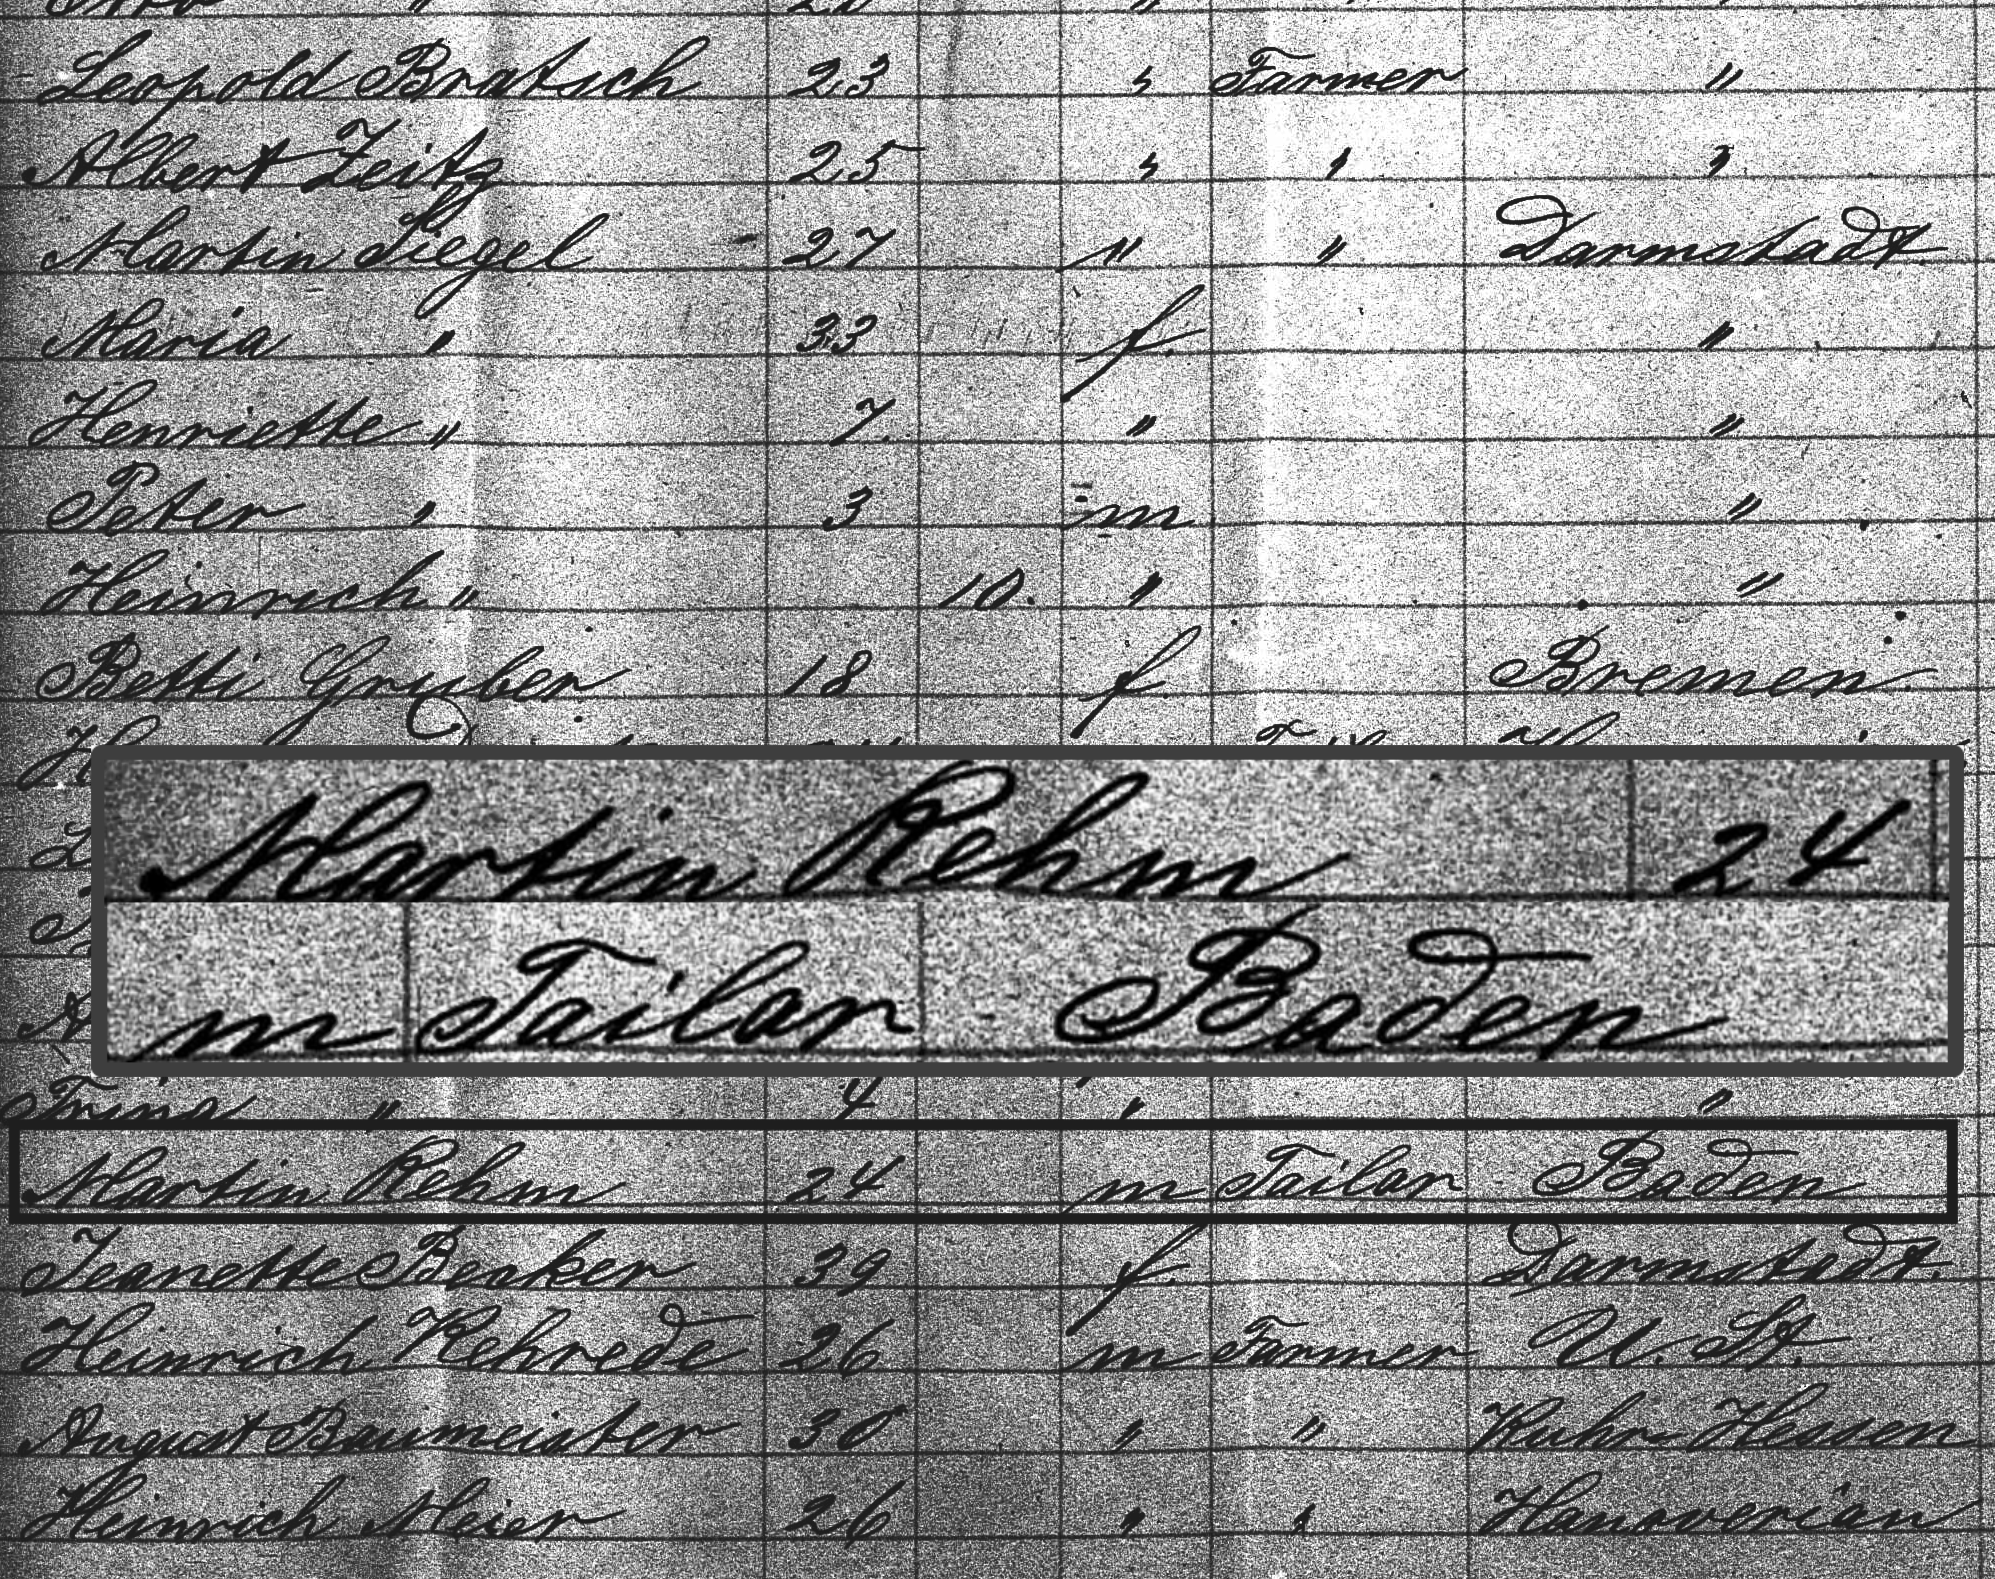 Leopold Bratsch 23 " Farmer "
Albert Zeitz 25 " " "
Martin Siegel 27 " " Darmstadt
Maria " 33 f "
Henriette " 7. " "
Peter " 3 m "
Heinrich " 10. " "
Betti Gruber 18 f Bremen
Martin Rehm 24
m Tailar Baden
" 4 " "
Martin Rehm 24 m Tailar Baden
Jeanette Becker 39 f. Darmstadt.
Heinrich Kehrede 26 m Farmer U. St.
August Baumeister 30 " " Kuhr-Hessen
Heinrich Meier 26 " " Hanoverian